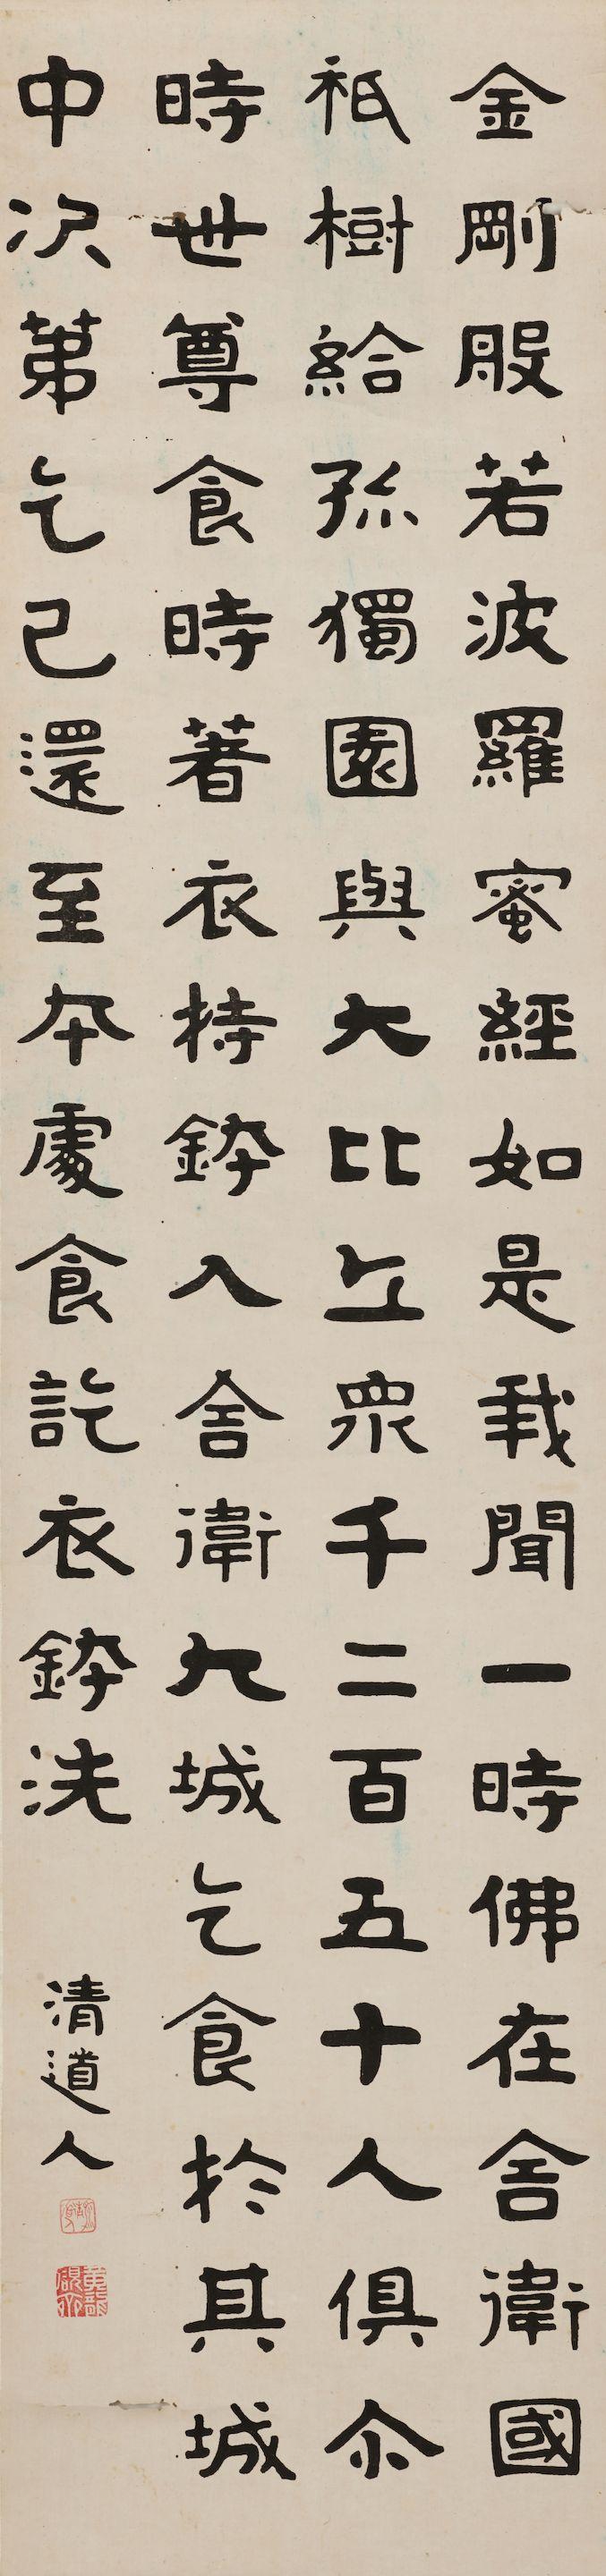 金剛般若波羅蜜經如是我聞一時佛在舍衛國
祇樹給孤獨園與大比丘眾千二百五十人俱尒
時世尊食時著衣持鉢入舍衛大城乞食於其城
中次第乞已還至本處食訖衣鉢洗
清道人